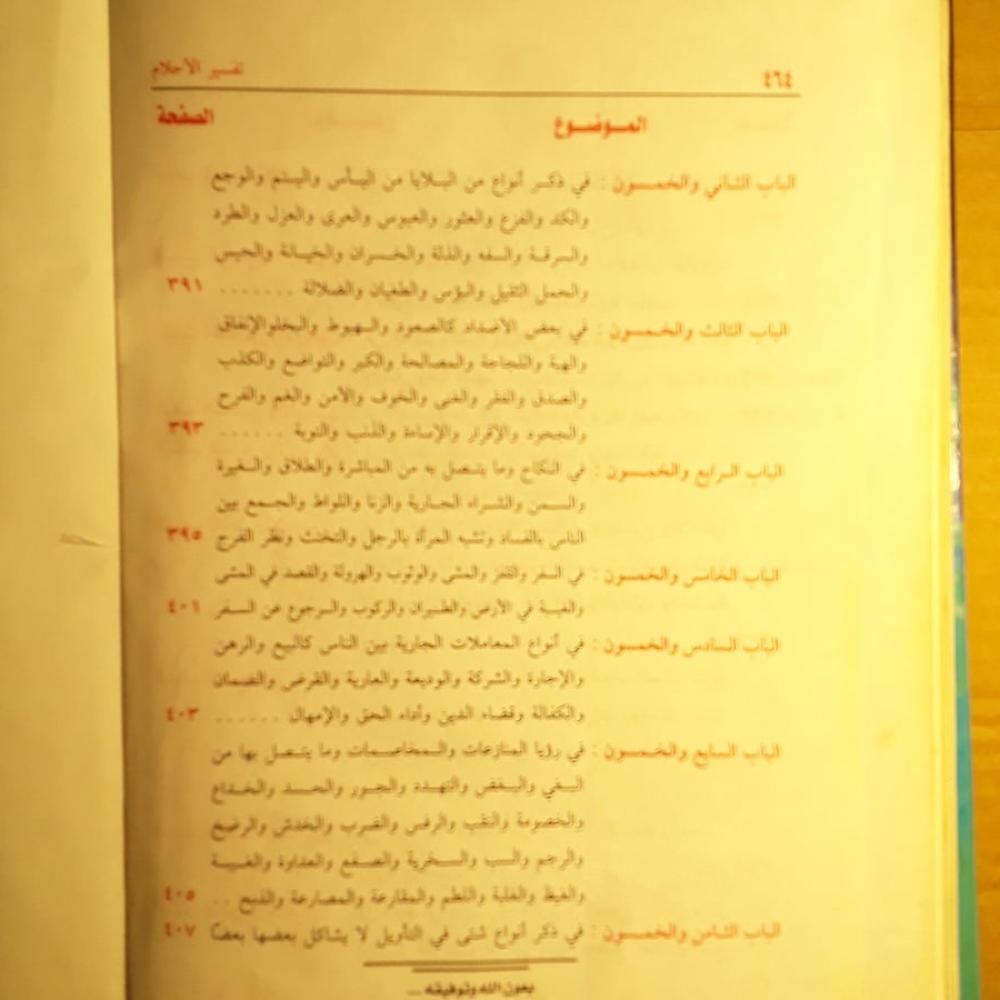 ٤٦٤ تفسير الأحلام
الموضوع الصفحة
الباب الثاني والخمسون : في ذكر أنواع من البلايا من اليأس واليتم والوجع
والكد والفزع والعثور والعبوس والعرى والعزل والطرد
والسرقة والسفه والذلة والخسران والخيانة والحبس
والحمل الثقيل والبؤس والطغيان والضلالة ....... ٣٩١
الباب الثالث والخمسون : في بعض الأضداد كالصعود والهبوط والبخل والإنفاق
والهبة واللجاجة والمصالحة والكبر والتواضع والكذب
والصدق والفقر والغنى والخوف والأمن والغم والفرح
والجحود والإقرار والإساءة والذنب والتوبة ...... ٣٩٣
الباب الرابع والخمسون : في النكاح وما يتصل به من المباشرة والطلاق والغيرة
والسمن والشراء الجارية والزنا واللواط والجمع بين
الناس بالفساد وتشبه المرأة بالرجل والتخنث ونظر الفرج ٣٩٥
الباب الخامس والخمسون : في السفر والقفز والمشى والوثوب والهرولة والقصد في المشى
والغيبة في الأرض والطيران والركوب والرجوع عن السفر ٤٠١
الباب السادس والخمسون : في أنواع المعاملات الجارية بين الناس كالبيع والرهن
والإجارة والشركة والوديعة والعارية والقرض والضمان
والكفالة وقضاء الدين وأداء الحق والإمهال ...... ٤٠٣
الباب السابع والخمسون : في رؤيا المنازعات والمخاصمات وما يتصل بها من
البغي والبغض والتهدد والجور والحسد والخداع
والخصومة والنقب والرفس والضرب والخدش والرضخ
والرجم والسب والسخرية والصفع والعداوة والغيبة
والغيظ والغلبة واللطم والمقارعة والمصارعة والذبح .. ٤٠٥
الباب الثامن والخمسون : في ذكر أنواع شتى في التأويل لا يشاكل بعضها بعضًا ٤٠٧
بعون الله وتوفيقه ...